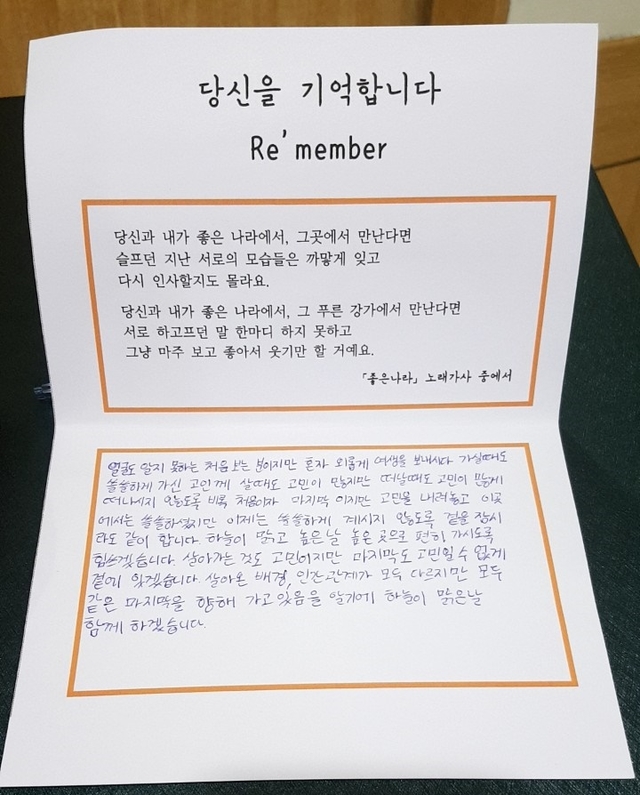 당신을 기억합니다
Re'member
당신과 내가 좋은 나라에서, 그곳에서 만난다면
슬프던 지난 서로의 모습들은 까맣게 잊고
다시 인사할지도 몰라요.
당신과 내가 좋은 나라에서, 그 푸른 강가에서 만난다면
서로 하고프던 말 한마디 하지 못하고
그냥 마주 보고 좋아서 웃기만 할 거예요.
「좋은나라」 노래가사 중에서
얼굴도 알지 못하는 처음 보는 분이지만 혼자 외롭게 여생을 보내시다 가실때도
쓸쓸하게 가신 고인께 살때도 고민이 많놓지만 떠날때도 고민이 많게
떠나시지 않도록 비록 처음이자 마지막 이지만 고민을 내려놓고 이곳
에서는 쓸쓸하셨지만 이제는 쓸쓸하게 계시지 않도록 곁을 잠시
라도 같이 합니다. 하늘이 맑고 높은날 높은 곳으로 편히 가시도록
힘쓰겠습니다. 살아가는 것도 고민이지만 마지막도 고민일 수 없게
곁에 있겠습니다. 살아온 배경, 인간관계가 모두 다르지만 모두
같은 마지막을 향해 가고 있음을 알기에 하늘이 맑은날
함께 하겠습니다.